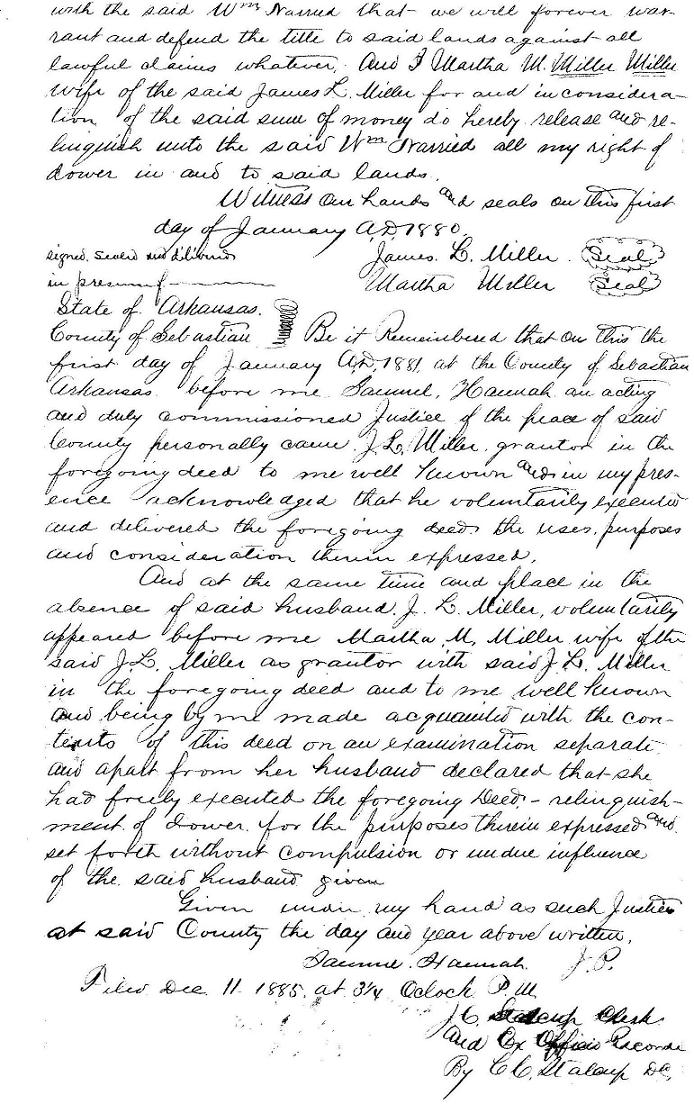 with the said Wm Narried that we will forever war-
rant and defend the title to said lands against all
lawful claims whatever. And I Martha M. Miller Miller
wife of the said James L. Miller for and in considera-
tion of the said sum of money do hereby release and re-
linquish unto the said Wm Narried all my right of
dower in and to said lands.
Witness our hands and seals on this first
day of January A.D. 1880.
signed, sealed and delivered James. L. Miller. Seal
in presence of Martha Miller Seal
State of Arkansas.
County of Sebastian Be it Remembered that on this the
first day of January A.D. 1881, at the County of Sebastian
Arkansas before me Samuel, Hannah an acting
and duly commissioned Justice of the peace of said
County personally came J. L. Miller. grantor in the
foregoing deed to me well known and in my pres-
ence acknowledged that he voluntarily executed
and delivered the foregoing deed the uses, purposes
and consideration therein expressed.
And at the same time and place in the
absence of said husband J. L. Miller, voluntarily
appeared before me Martha M, Miller wife of the
said J. L. Miller as grantor with said J. L. Miller
in the foregoing deed and to me well known
and being by me made acquainted with the con-
tents of this deed on an examination separate
and apart from her husband declared that she
had freely executed the foregoing Deed - relinquish-
ment of dower for the purposes therein expressed and
set forth without compulsion or undue influence
of the said husband given
Given under my hand as such Justice
at said County the day and year above written,
Samuel. Hannah. J. P.
Filed Dec. 11. 1885, at 3 1/4 Oclock P. M.
J. C. Stalcup Clerk
And Ex Officio Recorder
By C C. Stalcup DC.